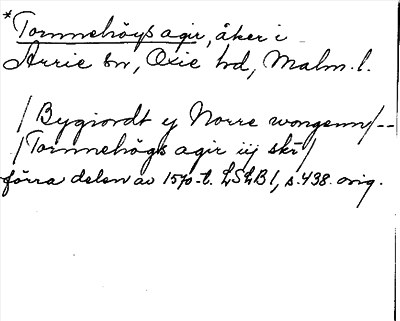 *Tommehöys agir, åker i
Arrie sn, Oxie hd, Malm. l.
/Bygiordt ej Norre wongenn/--
/Tommehögs agir iij skr/
förra delen av 1570-t. LSLB 1, s. 438. orig.